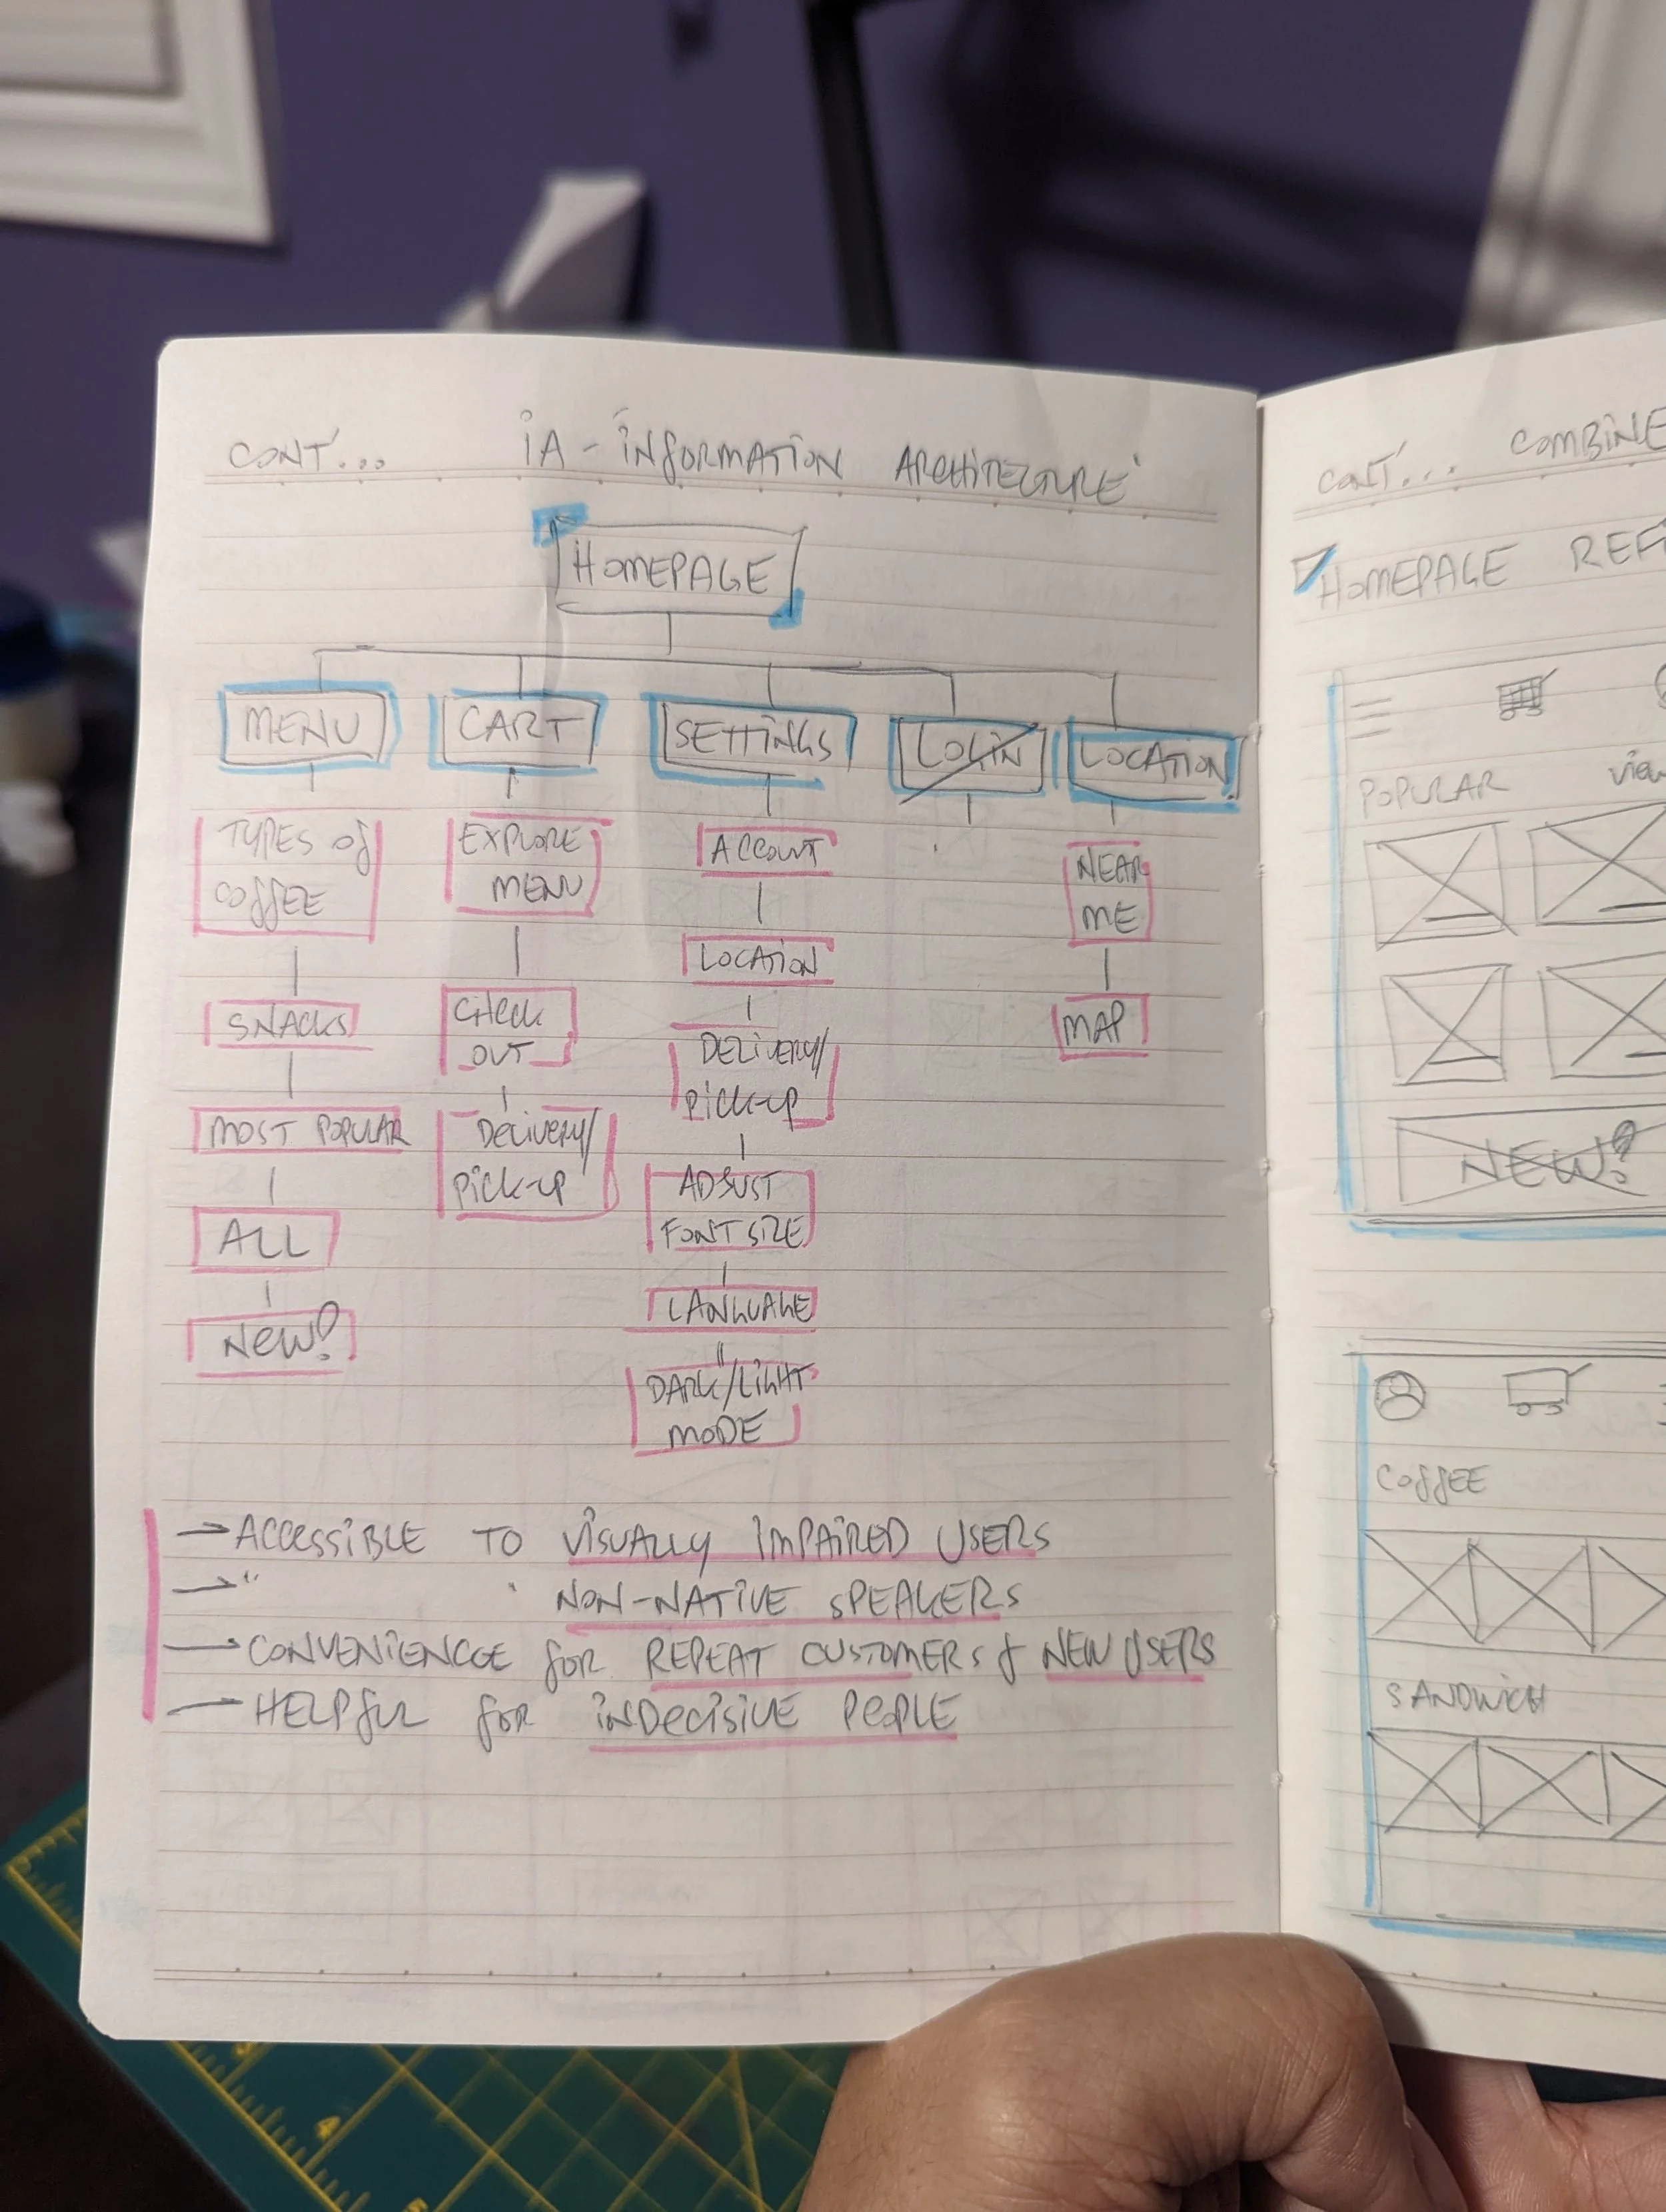 CONT'... IA - INFORMATION ARCHITECTURE
HOMEPAGE
MENU CART SETTINGS LOGIN LOCATION
TYPES OF
COFFEE
SNACKS
MOST POPULAR
ALL
NEW!
EXPLORE
MENU
CHECK
OUT
DELIVERY/
PICK-UP
ACCOUNT
LOCATION
DELIVERY/
PICK-UP
ADJUST
FONT SIZE
LANGUAGE
DARK/LIGHT
MODE
NEAR
ME
MAP
→ ACCESSIBLE TO VISUALLY IMPAIRED USERS
→ " " NON-NATIVE SPEAKERS
→ CONVENIENCE FOR REPEAT CUSTOMERS & NEW USERS
→ HELPFUL FOR INDECISIVE PEOPLE
CONT'... COMBINE
HOMEPAGE REF
POPULAR view
NEW?
COFFEE
SANDWICH